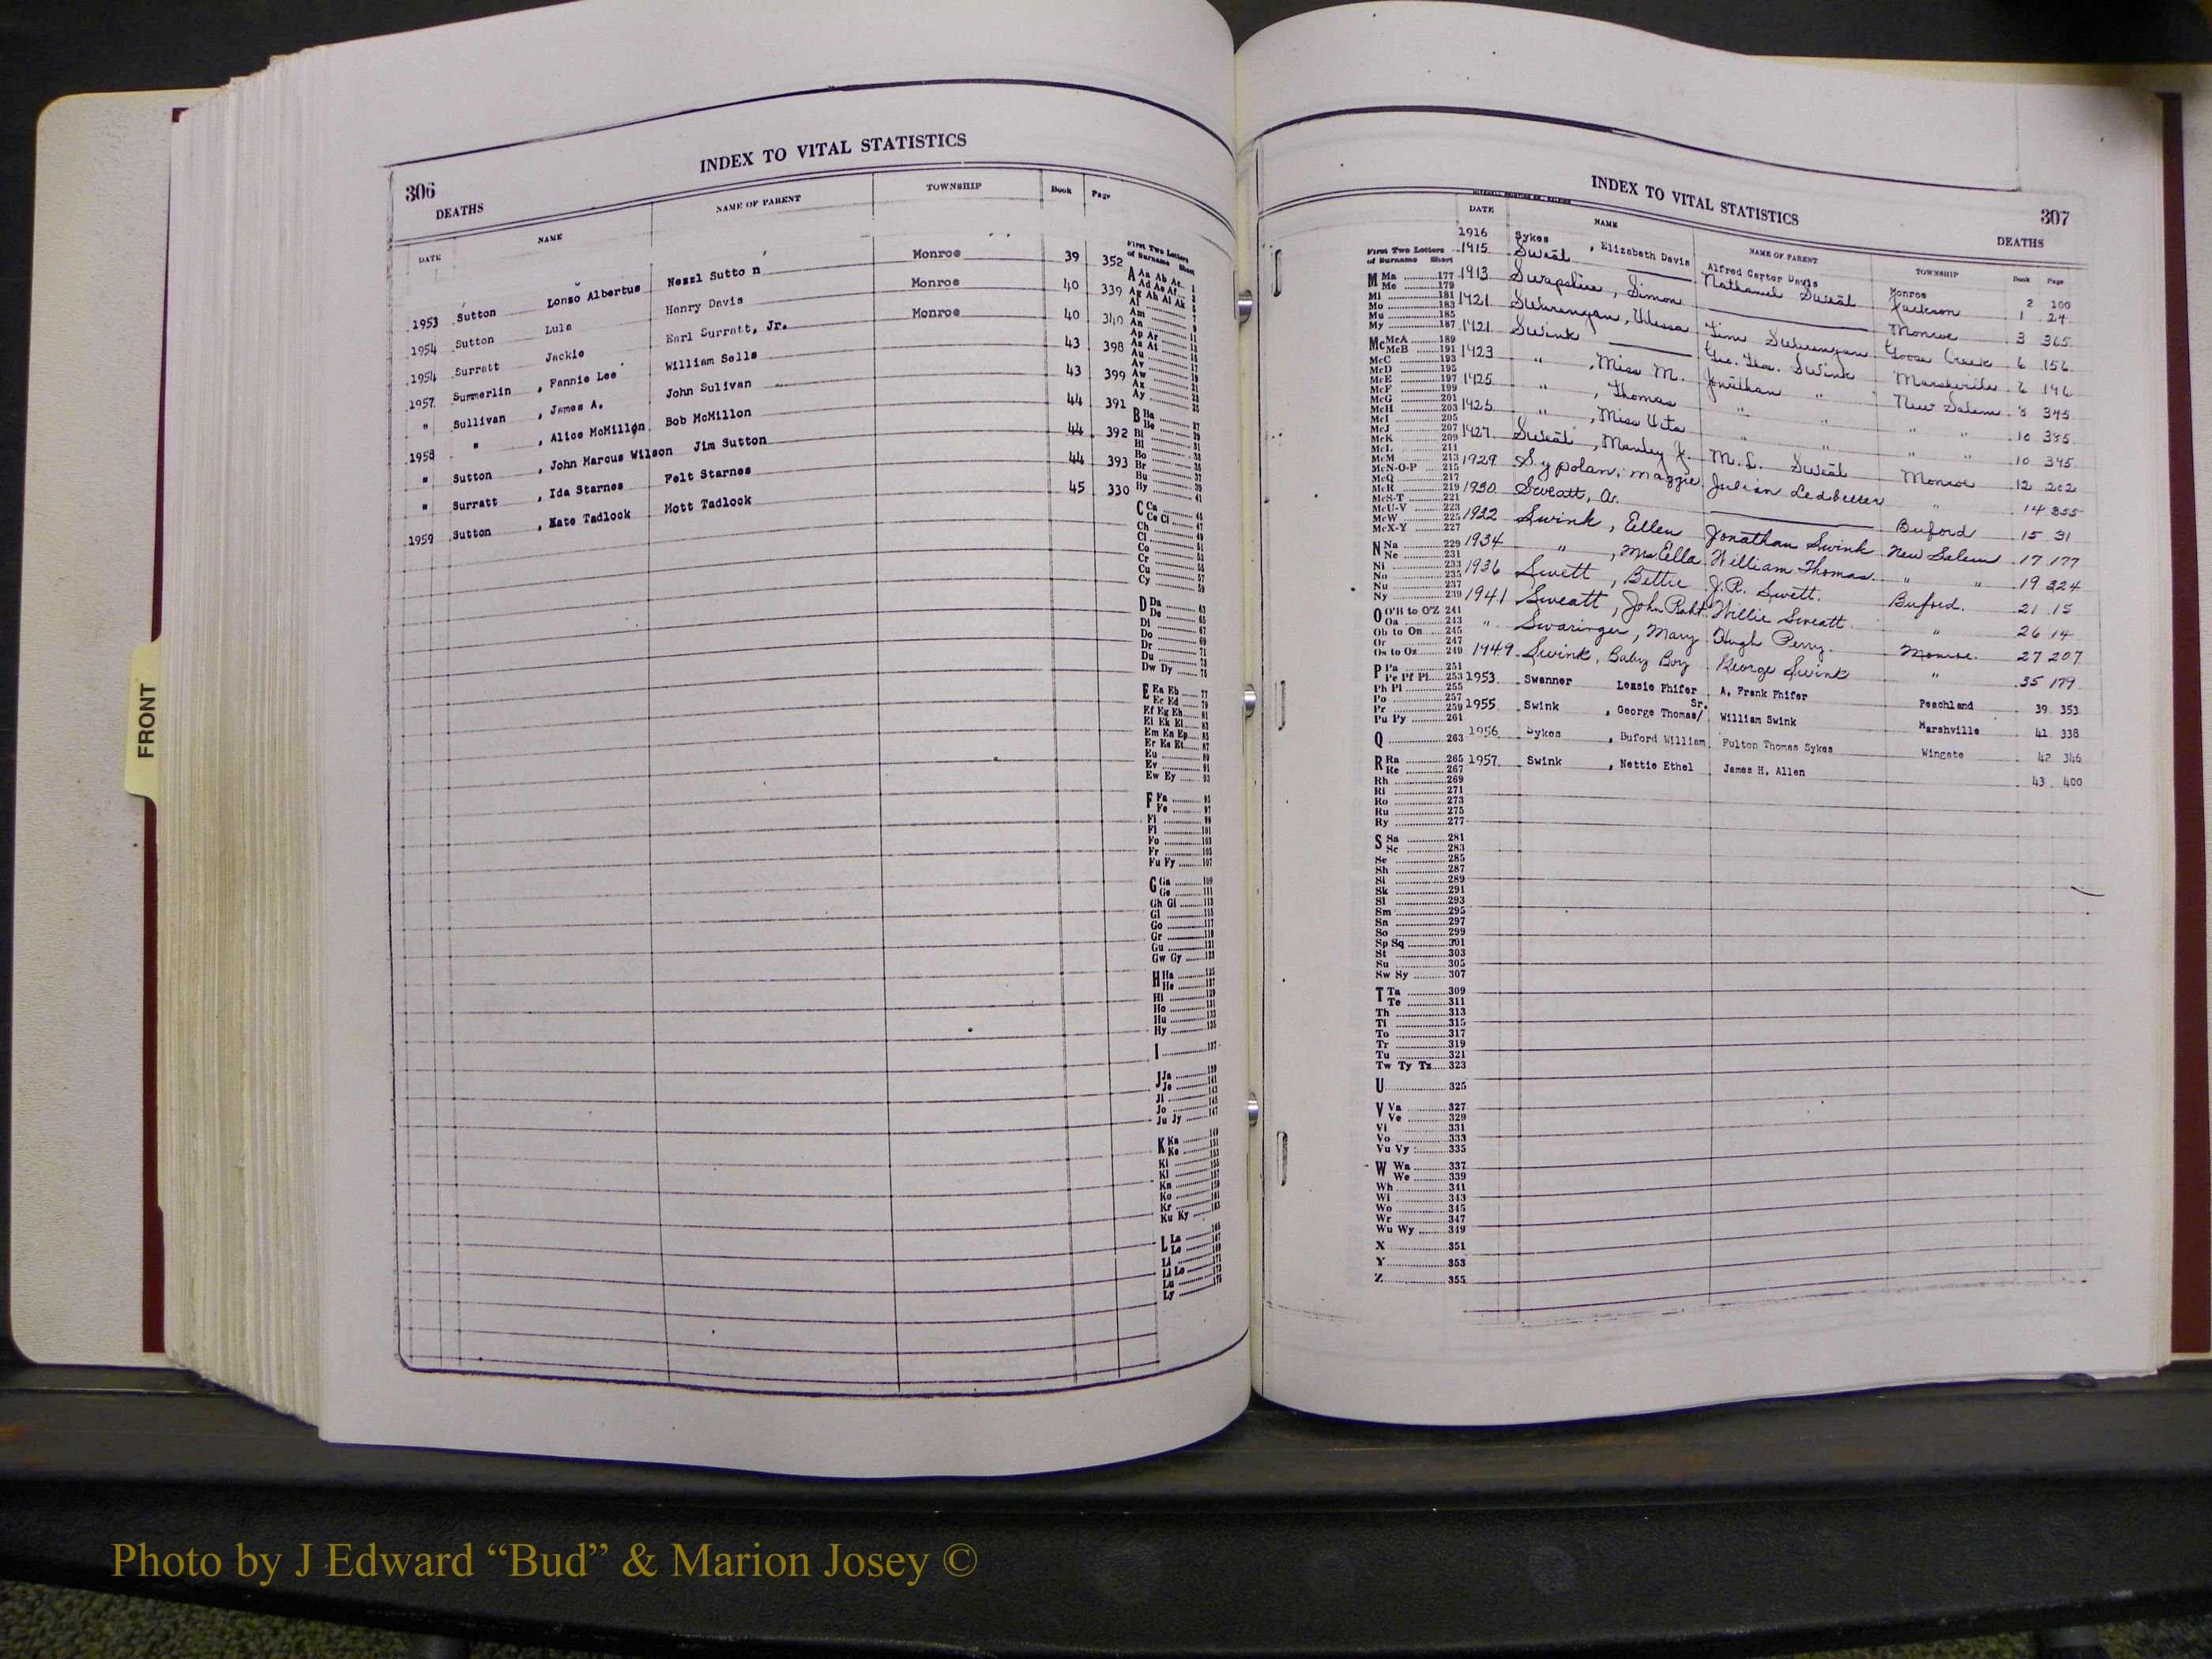 306
INDEX TO VITAL STATISTICS
DEATHS
DATE NAME NAME OF PARENT TOWNSHIP Book Page
1953 Sutton Lonso Albertus Neszl Sutton Monroe 39 352
1954 Sutton Lula Henry Davis Monroe 40 339
1954 Surratt Jackie Earl Surratt, Jr. Monroe 40 340
1957 Summerlin , Fannie Lee William Sells 43 398
" Sullivan , James A. John Sulivan 43 399
1958 " , Alice McMillon Bob McMillon 44 391
" Sutton , John Marcus Wilson Jim Sutton 44 392
" Surratt , Ida Starnes Felt Starnes 44 393
1959 Sutton , Kate Tadlock Mott Tadlock 45 330
First Two Letters
of Surname Sheet
A Aa Ab Ac
Ad Ae Af
Ag Ah Ai Ak
Al
Am
An
Ap Ar
As At
Au
Av
Aw
Ax
Ay
B Ba
Be
Bi
Bl
Bo
Br
Bu
By
C Ca
Ce Ci
Ch
Cl
Co
Cr
Cu
Cy
D Da
De
Di
Do
Dr
Du
Dw Dy
E Ea Eb 77
Ec Ed 79
Ef Eg Eh 81
Ei Ek El 83
Em En Ep 85
Er Es Et 87
Eu 89
Ev 91
Ew Ey 93
F Fa 95
Fe 97
Fi 99
Fl 101
Fo 103
Fr 105
Fu Fy 107
G Ga 109
Ge 111
Gh Gi 113
Gl 115
Go 117
Gr 119
Gu 121
Gw Gy 123
H Ha 125
He 127
Hi 129
Ho 131
Hu 133
Hy 135
I 137
J Ja 139
Je 141
Ji 143
Jo 145
Ju Jy 147
K Ka 149
Ke 151
Ki 153
Kl
Kn
Ko
Kr
Ku Ky 163
L La 165
Le 167
Li
Ll Lo
Lu
Ly
INDEX TO VITAL STATISTICS
307
DEATHS
DATE NAME NAME OF PARENT TOWNSHIP Book Page
1916 Sykes , Elizabeth Davis Alfred Carter Davis Monroe 2 100
1915 Sweat Nathaniel Sweat Jackson 1 24
1913 , Simon Monroe 3 365
1921 , Odessa Jim Goose Creek 6 156
1921 Swink Geo. Tho. Swink Marshville 6 146
1923 " , Miss M. Jonathan " New Salem 8 345
1925 " , Thomas " " " 10 395
1925 " , Miss Vita " " " 10 395
1927 Sweat , Manley J. M. L. Sweat Monroe 12 202
1929 Sypolan, Maggie Julian Ledbetter " 14 355
1930 Sweatt, A. Buford 15 31
1932 Swink , Ellen Jonathan Swink New Salem 17 177
1934 " , Mrs Ella William Thomas " " 19 324
1936 Swett , Bettie J.R. Swett. Buford. 21 15
1941 Sweatt , John Robt. Willie Sweatt " 26 14
" Swaringer, Mary Hugh Perry. Monroe. 27 207
1949 Swink, Baby Boy George Swink " 35 179
1953 Swanner Lessie Phifer A. Frank Phifer Peachland 39 353
1955 Swink , George Thomas/ Sr. William Swink Marshville 41 338
1956 Sykes , Buford William Fulton Thomas Sykes Wingate 42 346
1957 Swink , Nettie Ethel James H. Allen 43 400
First Two Letters
of Surname Sheet
M Ma 177
Me 179
Mi 181
Mo 183
Mu 185
My 187
Mc McA 189
McB 191
McC 193
McD 195
McE 197
McF 199
McG 201
McH 203
McI 205
McJ 207
McK 209
McL 211
McM 213
McN-O-P 215
McQ 217
McR 219
McS-T 221
McU-V 223
McW 225
McX-Y 227
N Na 229
Ne 231
Ni 233
No 235
Nu 237
Ny 239
O O'B to O'Z 241
Oa 243
Ob to On 245
Or 247
Os to Oz 249
P Pa 251
Pe Pf Pl 253
Ph Pi 255
Po 257
Pr 259
Pu Py 261
Q 263
R Ra 265
Re 267
Rh 269
Ri 271
Ro 273
Ru 275
Ry 277
S Sa 281
Sc 283
Se 285
Sh 287
Si 289
Sk 291
Sl 293
Sm 295
Sn 297
So 299
Sp Sq 301
St 303
Su 305
Sw Sy 307
T Ta 309
Te 311
Th 313
Ti 315
To 317
Tr 319
Tu 321
Tw Ty Tz 323
U 325
V Va 327
Ve 329
Vi 331
Vo 333
Vu Vy 335
W Wa 337
We 339
Wh 341
Wi 343
Wo 345
Wr 347
Wu Wy 349
X 351
Y 353
Z 355
FRONT
Photo by J Edward “Bud” & Marion Josey ©